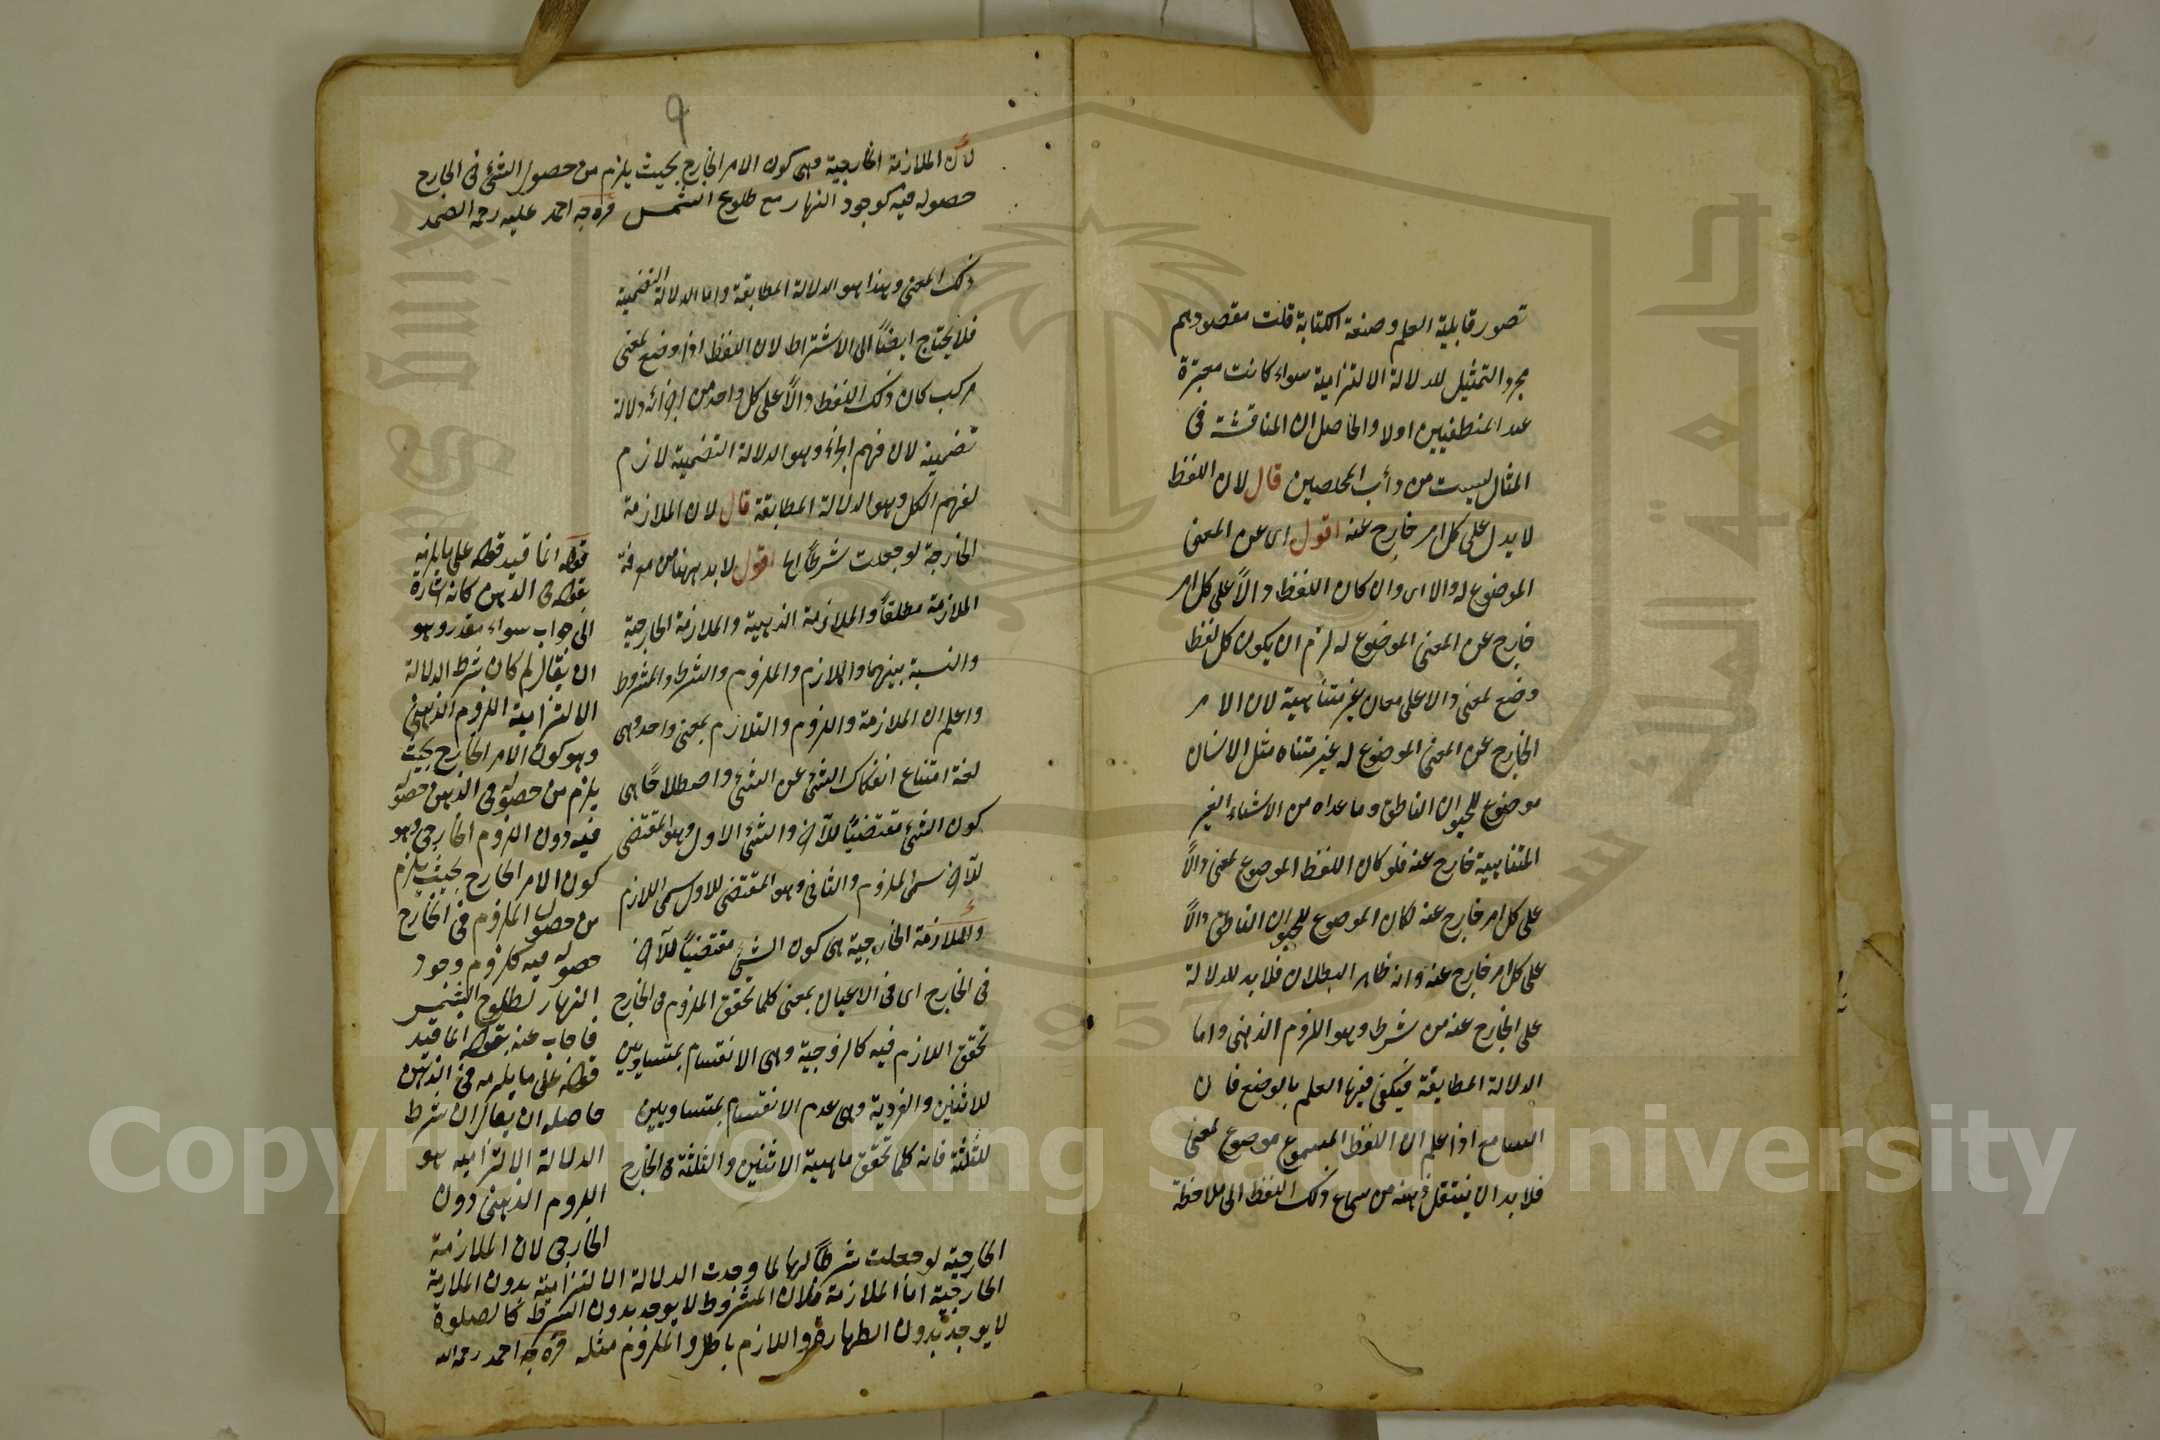 تصور قابلية العلم وصنعة الكتابة قلت مقصودهم
مجرد التمثيل للدلالة الالتزامية سواء كانت معتبرة
عند المنطقيين اولا والحاصل ان المناقشة فى
المثال ليست من دأب المحصلين قال لان اللفظ
لا يدل على كل امر خارج عنه اقول اى عن المعنى
الموضوع له والا اى وان كان اللفظ دالاً على كل امر
خارج عن المعنى الموضوع له لزم ان يكون كل لفظ
وضع لمعنى دالا على معان غير متناهية لان الامر
الخارج عن المعنى الموضوع له غير متناه مثل الانسان
موضوع للحيوان الناطق وما عداه من الاشياء الغير
المتناهية خارج عنه فلو كان اللفظ الموضوع لمعنى دالاً
على كل امر خارج عنه لكان الموضوع للحيوان الناطق دالاً
على كل امر خارج عنه وانه ظاهر البطلان فلا بد للدلالة
على الخارج عنه من شرط وهو اللزوم الذهنى واما
الدلالة المطابقة فيكفى فيها العلم بالوضع فان
السامع اذا علم ان اللفظ المسموع موضوع لمعنى
فلا بد ان ينتقل ذهنه من سماع ذلك اللفظ الى ملاحظة
٩
لان الملازمة الخارجية وهى كون الامر الخارج بحيث يلزم من حصول الشئ فى الخارج
حصوله فيه كوجود النهار مع طلوع الشمس قره جه احمد عليه رحمة الصمد
ذلك المعنى وهذا هو الدلالة المطابقة واما الدلالة التضمنية
فلا يحتاج ايضاً الى الاشتراط لان اللفظ اذا وضع لمعنى
مركب كان ذلك اللفظ دالاً على كل واحد من اجزائه دلالة
تضمنية لان فهم اجزائه وهو الدلالة التضمنية لازم
لفهم الكل وهو الدلالة المطابقة قال لان الملازمة
الخارجة لو جعلت شرطاً لها اقول لا بد ههنا من معرفة
الملازمة مطلقاً والملازمة الذهنية والملازمة الخارجية
والنسبة بينهما واللازم والملزوم والشرط والمشروط
واعلم ان الملازمة واللزوم والتلازم بمعنى واحد وهى
لغة امتناع انفكاك الشئ عن الشئ واصطلاحاً هى
كون الشئ مقتضياً للآخر والشئ الاول وهو المقتضى
للآخر سمى الملزوم والثانى وهو المقتضى للاول سمى اللازم
والملازمة الخارجية هى كون الشئ مقتضياً للآخر
فى الخارج اى فى الاعيان بمعنى كلما تحقق الملزوم فى الخارج
تحقق اللازم فيه كالزوجية وهى الانقسام بمتساويين
للاثنين والفردية وهى عدم الانقسام بمتساويين
للثلثة فانه كلما تحقق ماهية الاثنين والثلثة فى الخارج
قوله انما قيد قوله على ما يلزمه
بقوله فى الذهن كانه اشارة
الى جواب سواء مقدر وهو
ان يقال لم كان شرط الدلالة
الالتزامية اللزوم الذهنى
وهو كون الامر الخارج بحيث
يلزم من حصوله فى الذهن حصوله
فيه دون اللزوم الخارجى وهو
كون الامر الخارج بحيث يلزم
من حصول الملزوم فى الخارج
حصوله فيه كلزوم وجود
النهار لطلوع الشمس
فاجاب عنه بقوله انما قيد
قوله على ما يلزمه فى الذهن
حاصله ان يقال ان شرط
الدلالة الالتزامية هو
اللزوم الذهنى دون
الخارجى لان الملازمة
الخارجية لو جعلت شرطاً لها لما وجدت الدلالة الالتزامية بدون الملازمة
الخارجية اما الملازمة فلان المشروط لا يوجد بدون الشرط كالصلوة
لا يوجد بدون الطهارة واللازم باطل والملزوم مثله قره جه احمد رحمه الله
Copyright © King Saud University
جامعة الملك سعود
King Saud University
1957